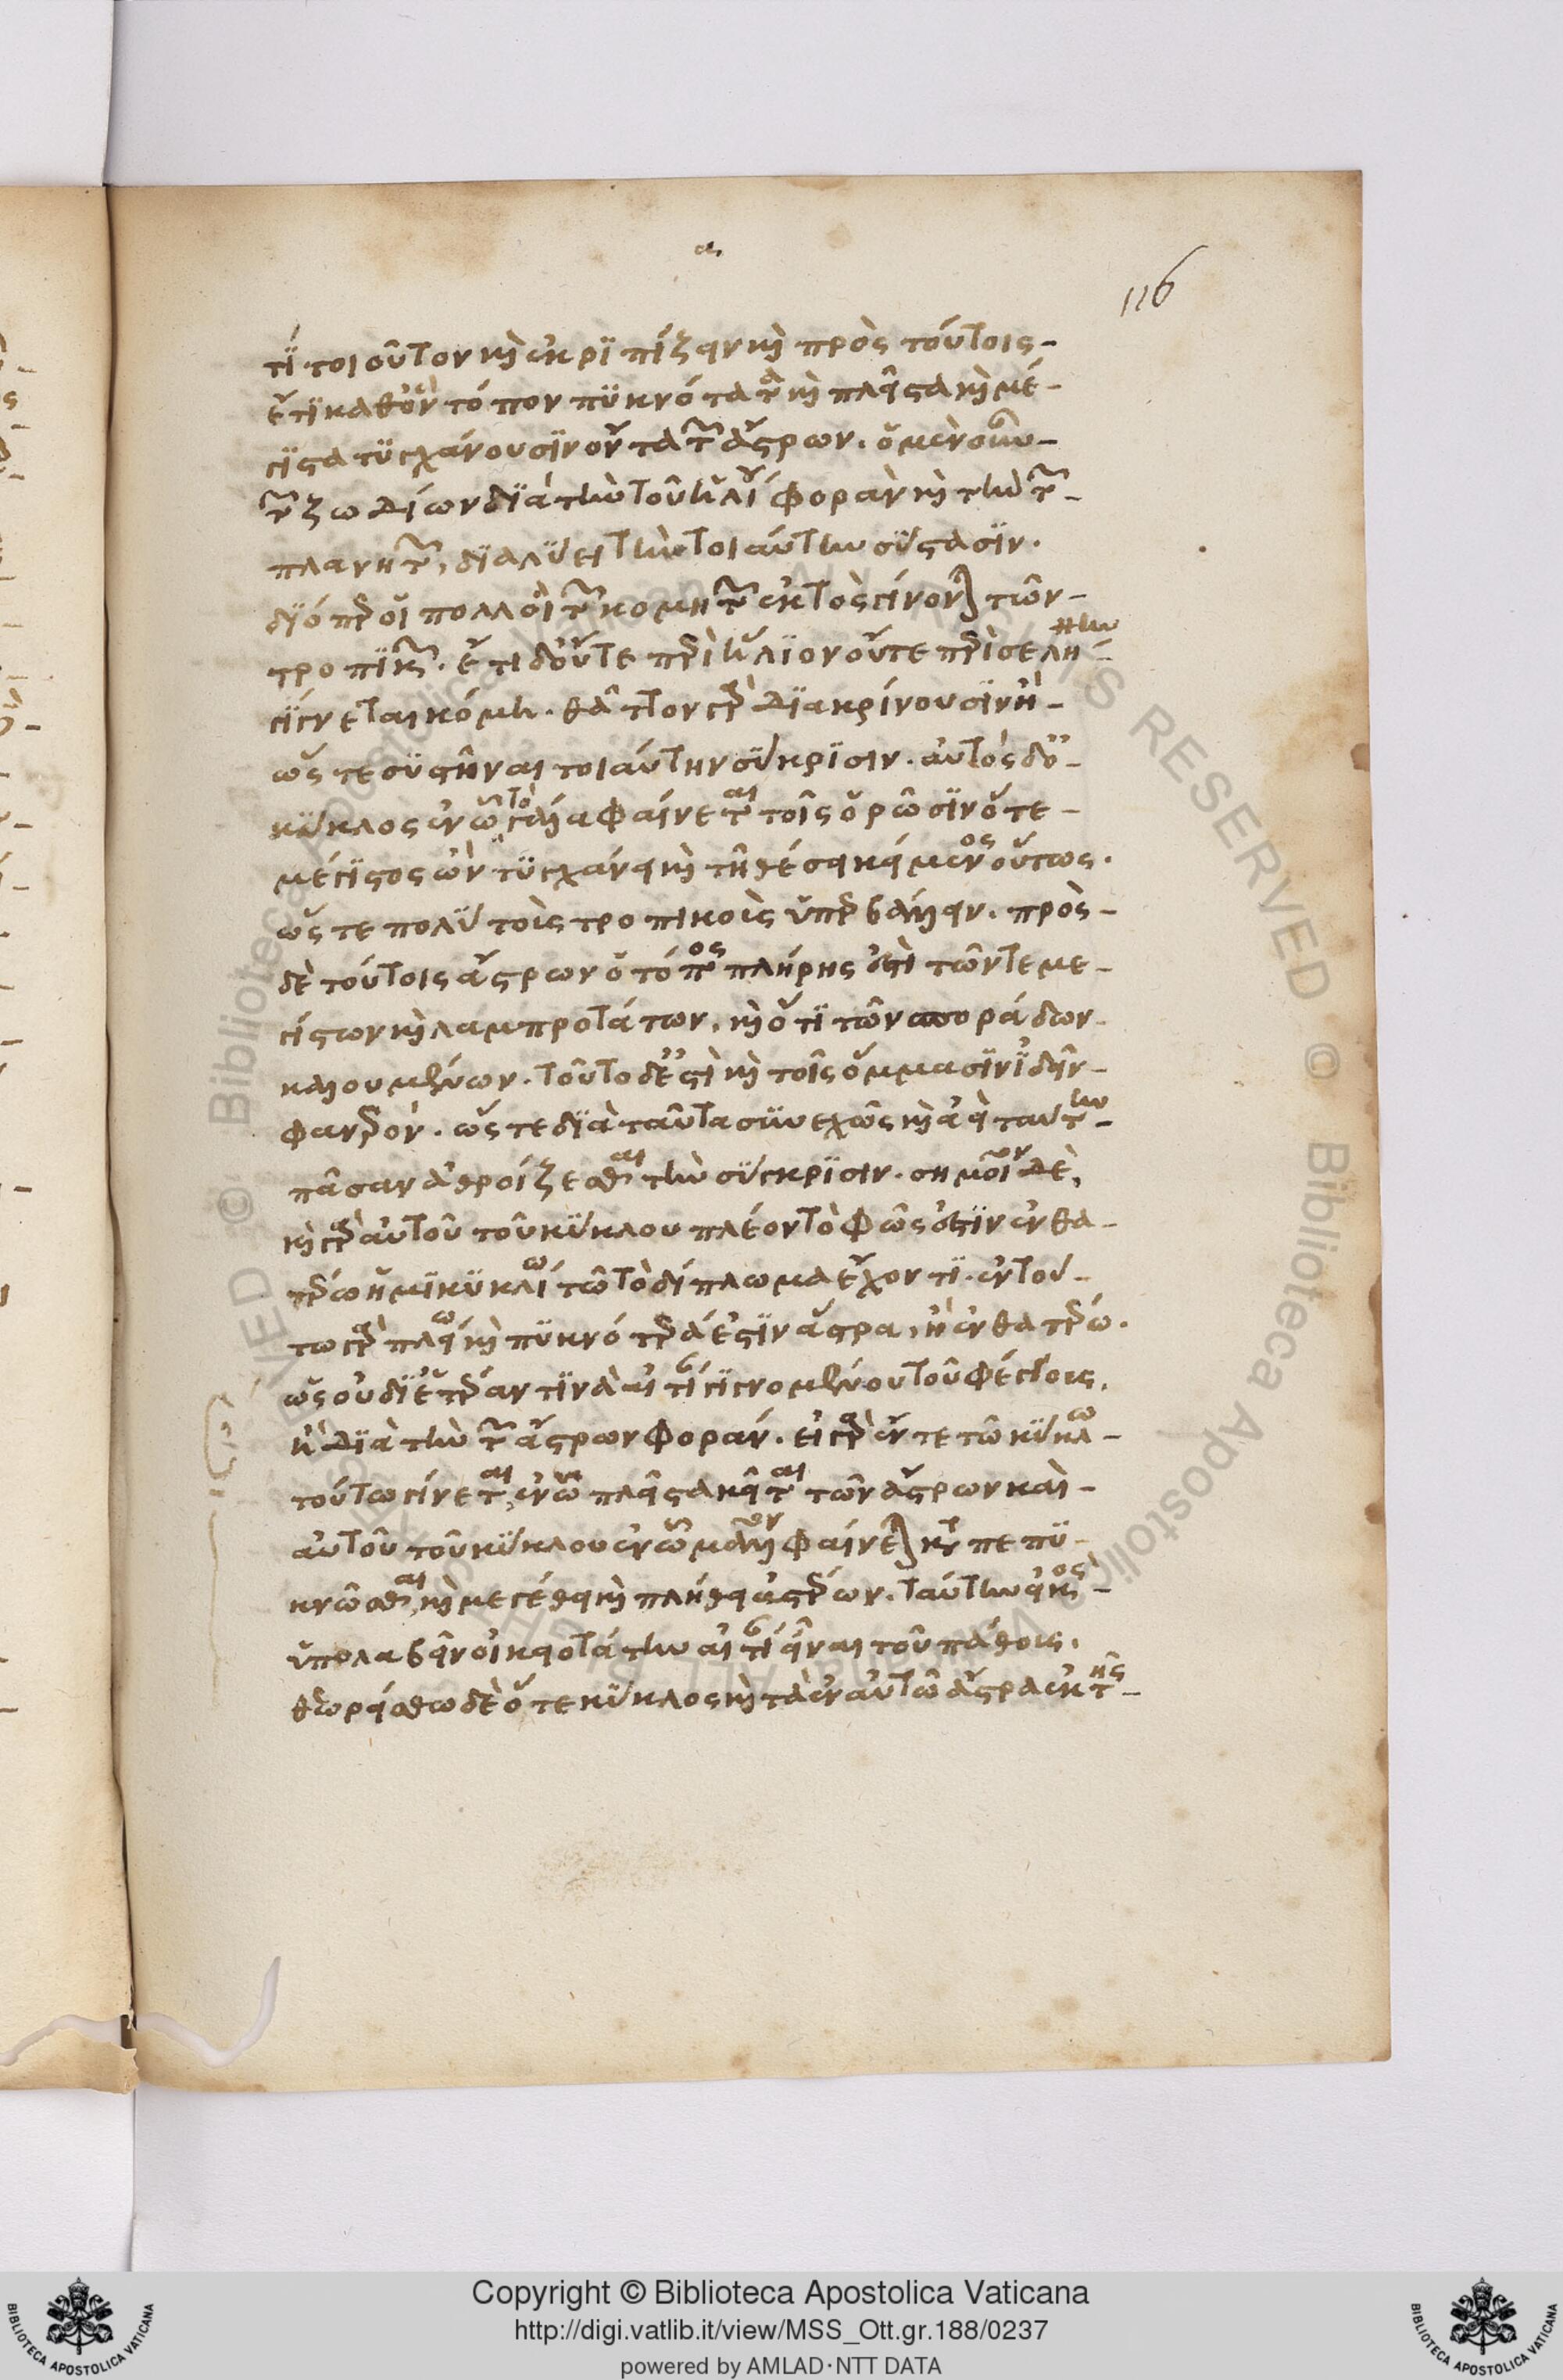 α
116
τι τοιοῦτον καὶ ἐκριπίζειν καὶ πρὸς τούτοις-
ἔτι καθ' ὃν τόπον πυκνότατα καὶ πλεῖστα καὶ μέ-
γιστα τυγχάνουσιν ὄντα τῶν ἄστρων. ὁ μὲν οὖν-
τῶν ζωδίων διὰ τὴν τοῦ ἡλίου φορὰν καὶ τὴν τῶν-
πλανήτων, διαλύει τὴν τοιαύτην σύστασιν.
διόπερ οἱ πολλοὶ τῶν κομητῶν ἐκτὸς γίνονται τῶν-
τροπικῶν. ἔτι δ' οὔτε περὶ ἥλιον οὔτε περὶ σελήνην-
γίγνεται κόμη. θᾶττον γὰρ διακρίνουσιν ἢ-
ὥστε συστῆναι τοιαύτην σύγκρισιν. αὐτὸς δ' ὁ-
κύκλος ἐν ᾧ τὸ γάλα φαίνεται τοῖς ὁρῶσιν ὅ τε-
μέγιστος ὢν τυγχάνει καὶ τῇ θέσει κείμενος οὕτως.
ὥστε πολὺ τοὺς τροπικοὺς ὑπερβάλλειν. πρὸς-
δὲ τούτοις ἄστρων ὁ τόπος πλήρης ἐστὶ τῶν τε με-
γίστων καὶ λαμπροτάτων, καὶ ἔτι τῶν σποράδων
καλουμένων. τοῦτο δ' ἔστι καὶ τοῖς ὄμμασιν ἰδεῖν-
φανερόν. ὥστε διὰ ταῦτα συνεχῶς καὶ ἀεὶ ταύτην-
πᾶσαν ἀθροίζεσθαι τὴν σύγκρισιν. σημεῖον δέ,
καὶ γὰρ αὐτοῦ τοῦ κύκλου πλέον τὸ φῶς ἐστιν ἐν θα-
τέρῳ ἡμικυκλίῳ τῷ τὸ δίπλωμα ἔχοντι. ἐν τού-
τῳ γὰρ πλείω καὶ πυκνότερά ἐστιν ἄστρα, ἢ ἐν θατέρῳ.
ὡς οὐ δι' ἑτέραν τινὰ αἰτίαν γιγνομένου τοῦ φέγγους,
ἢ διὰ τὴν τῶν ἄστρων φοράν. εἰ γὰρ ἔν τε τῷ κύκλῳ-
τούτῳ γίνεται, ἐν ᾧ πλεῖστα κεῖται τῶν ἄστρων καὶ-
αὐτοῦ τοῦ κύκλου ἐν ᾧ μᾶλλον φαίνεται καταπεπυ-
κνῶσθαι, καὶ μεγέθει καὶ πλήθει ἀστέρων. ταύτην εἰκὸς-
ὑπολαβεῖν οἰκειοτάτην αἰτίαν εἶναι τοῦ πάθους.
θεωρείσθω δὲ ὅ τε κύκλος καὶ τὰ ἐν αὐτῷ ἄστρα ἐκ τῆς-
Copyright © Biblioteca Apostolica Vaticana
http://digi.vatlib.it/view/MSS_Ott.gr.188/0237
powered by AMLAD·NTT DATA